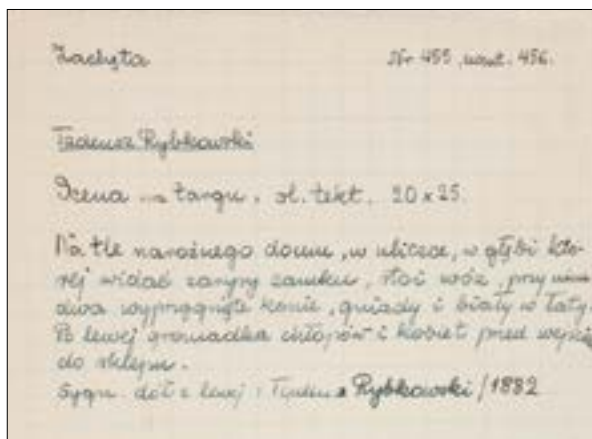 Zachęta Nr 455, nowt. 456.
Tadeusz Rybkowski
Scena na targu. ol. tekt. 20 x 25.
Na tle narożnego domu, w uliczce, w głębi któ-
rej widać zarysy zamku, stoi wóz, przy nim
dwa wyprzągnięte konie, gniady i biały w łaty.
Z lewej gromadka chłopów i kobiet przed wejściem
do sklepu.
Sygn. dół z lewej: Tadeusz Rybkowski / 1882